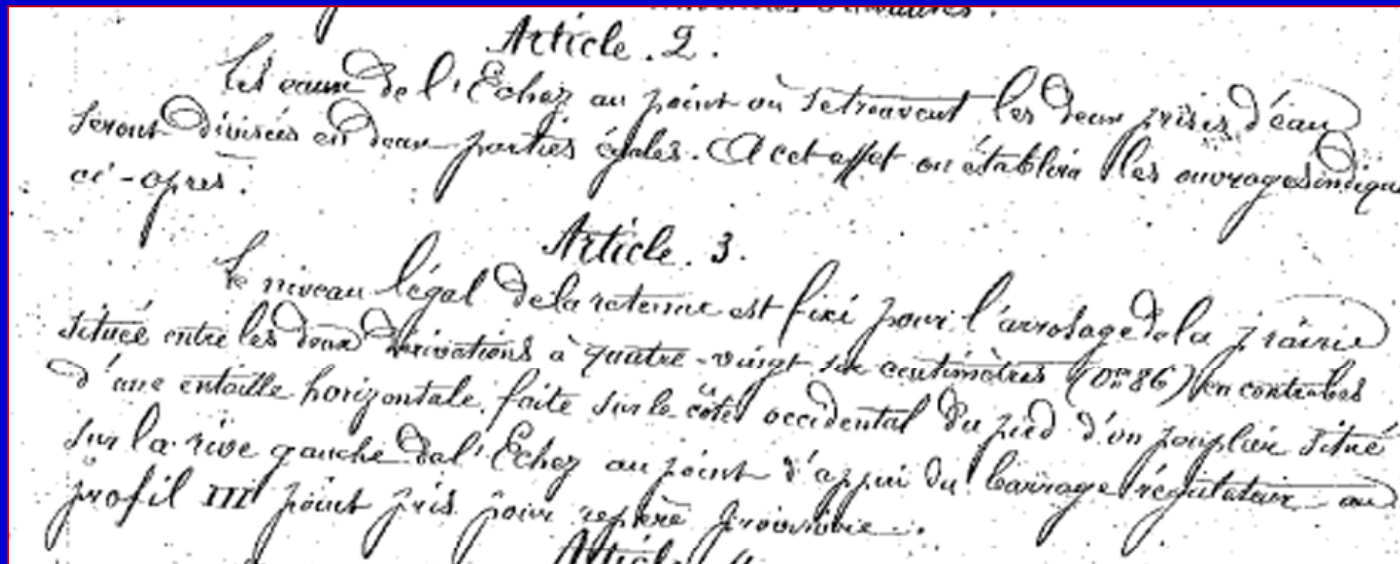 Article . 2 .
Les eaux de l'Echez au point où se trouvent les deux prises d'eau
seront divisées en deux parties égales. A cet effet on établira les ouvrages indiqué
ci-après .
Article . 3 .
Le niveau légal de la retenue est fixé pour l'arrosage de la prairie
située entre les deux dérivations à quatre-vingt six centimètres (0m86) en contrebas
d'une entaille horizontale, faite sur le côté occidental du pied d'un peuplier situé
sur la rive gauche de l'Echez au point d'appui du barrage régulateur au
profil III point pris pour repère provisoire .
Article 4